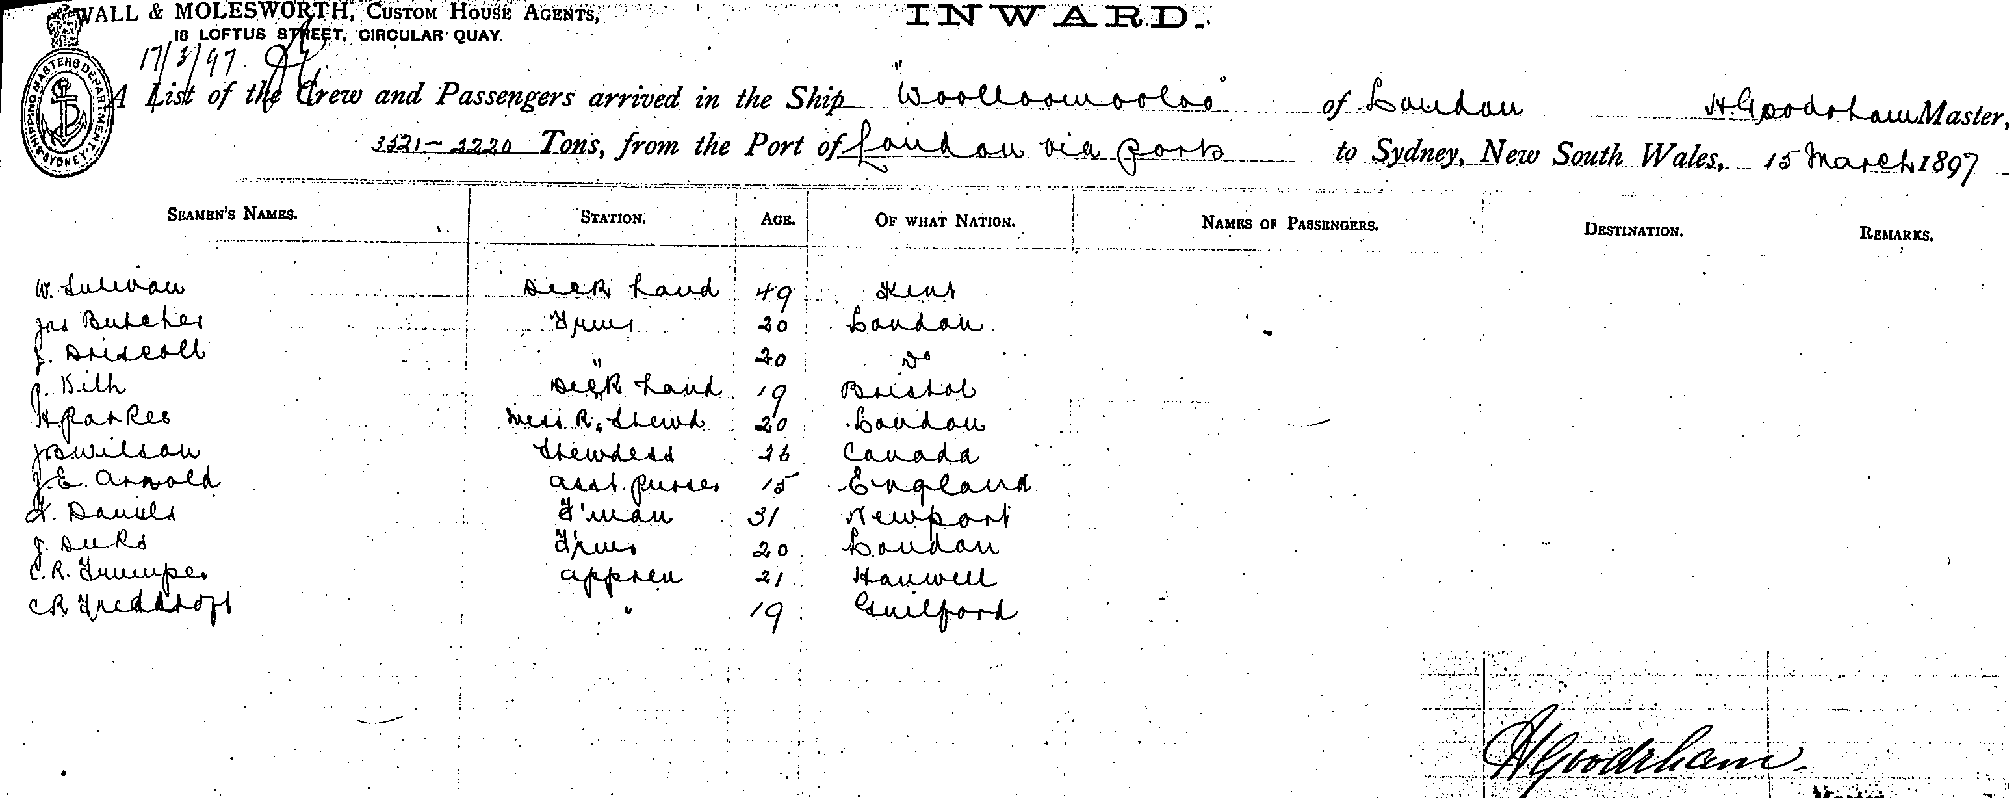 WALL & MOLESWORTH, CUSTOM HOUSE AGENTS,
18 LOFTUS STREET, CIRCULAR QUAY.
INWARD.
17/3/97.
SHIPPING MASTERS DEPARTMENT SYDNEY
A List of the Crew and Passengers arrived in the Ship "Woolloomooloo" of London H. Goodrham Master,
3521 - 2220 Tons, from the Port of London via ports to Sydney, New South Wales, 15 March 1897
SEAMEN'S NAMES. STATION. AGE. OF WHAT NATION. NAMES OF PASSENGERS. DESTINATION. REMARKS.
W. Sulivan Deck hand 49 Kent
Jas Butcher Trmr 20 London
J. Driscoll " 20 Do
J. Kith Deck hand 19 Bristol
H Parkes Mess R. Stewd 20 London
J B Wilson Stewdess 26 Canada
J. E. Arnold asst. purser 15 England
Daniels F'man 31 Newport
J. Trmr 20 London
C. R. Trumper appren 21 Hanwell
C R " 19 Guilford
H Goodrham